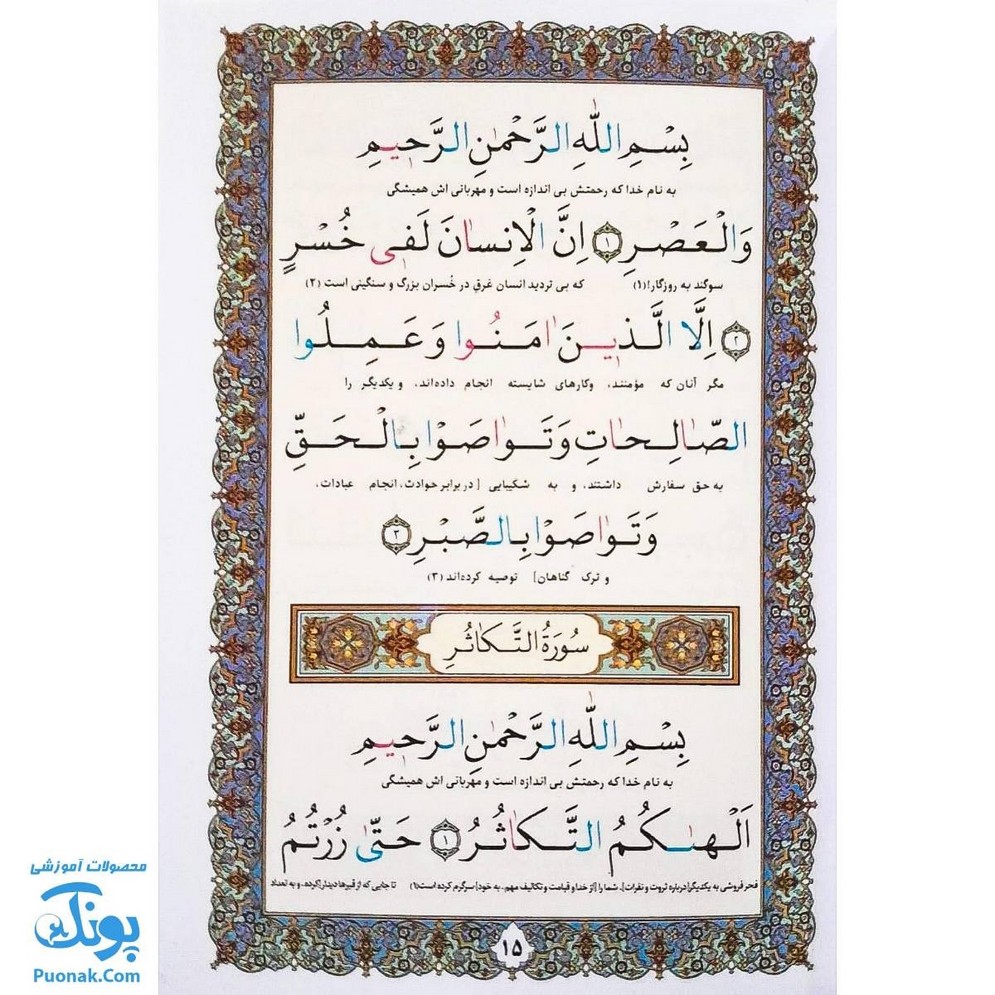 بِسْمِ اللّٰهِ الرَّحْمٰنِ الرَّحيمِ
به نام خدا که رحمتش بی اندازه است و مهربانی اش همیشگی
وَالْعَصْرِ ۱ اِنَّ الْاِنسانَ لَفي خُسْرٍ
سوگند به روزگار! (۱) که بی تردید انسان غرق در خُسران بزرگ و سنگینی است (۲)
۲ اِلَّا الَّذينَ ءامَنُوا وَ عَمِلُوا
مگر آنان که مؤمنند، وکارهای شایسته انجام داده‌اند، و یکدیگر را
الصّالِحاتِ وَ تَواصَوْا بِالْحَقِّ
به حق سفارش داشتند، و به شکیبایی [در برابر حوادث، انجام عبادات،
وَ تَواصَوْا بِالصَّبْرِ ۳
و ترک گناهان] توصیه کرده‌اند (۳)
سُورَةُ التَّكاثُرِ
بِسْمِ اللّٰهِ الرَّحْمٰنِ الرَّحيمِ
به نام خدا که رحمتش بی اندازه است و مهربانی اش همیشگی
اَلْهىٰكُمُ التَّكاثُرُ ۱ حَتّىٰ زُرْتُمُ
فخر فروشی به یکدیگر [درباره ثروت و نفرات]، شما را [از خدا و قیامت و تکالیف مهم، به خود] سرگرم کرده است (۱) تا جایی که از قبرها دیدار [کرده، و به تعداد
۱۵
محصولات آموزشی
پونک
Puonak.Com